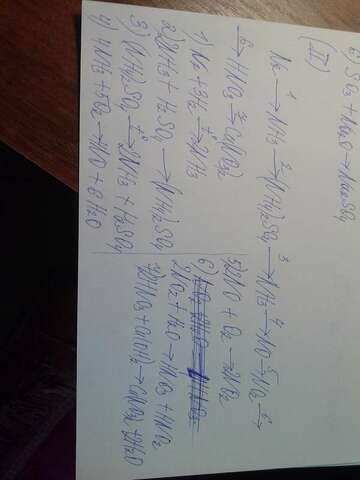 6) SO3 + Na2O → Na2SO4
(II)
N2 →1 NH3 →2 (NH4)2SO4 →3 NH3 →4 NO →5 NO2 →6
→6 HNO3 →7 Ca(NO3)2
1) N2 + 3H2 →t° 2NH3
2) 2NH3 + H2SO4 → (NH4)2SO4
3) (NH4)2SO4 →t° 2NH3 + H2SO4
4) 4NH3 + 5O2 → 4NO + 6H2O
5) 2NO + O2 → 2NO2
6)
2NO2 + H2O → HNO3 + HNO2
7) 2HNO3 + Ca(OH)2 → Ca(NO3)2 + 2H2O